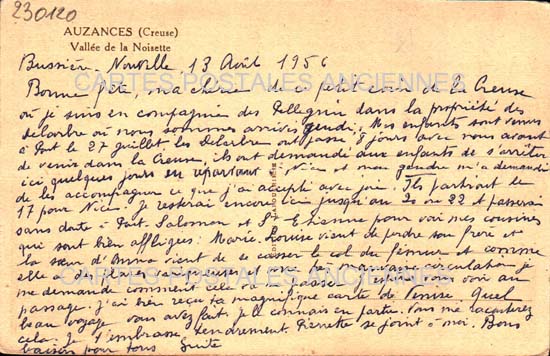 230120
AUZANCES (Creuse)
Vallée de la Noisette
Bussière-Nouvelle 13 Août 1956
CARTES POSTALES ANCIENNES
Bonne fête, ma chérie de ce petit coin de la Creuse
où je suis en compagnie des Pellegrin dans la propriété des
Delarbre où nous sommes arrivés jeudi. Mes enfants sont venus
à Pont le 27 juillet, les Delarbre ont passé 8 jours avec nous avant
de venir dans la Creuse, ils ont demandé aux enfants de s'arrêter
ici quelques jours en repartant à Nice et mon gendre m'a demandé
de les accompagner ce que j'ai accepté avec joie. Ils partiront le
17 pour Nice. Je resterai encore ici jusqu'au 20 ou 22 et passerai
sans date à Pont Salomon et St Etienne pour voir mes cousines
qui sont bien affligées: Marie-Louise vient de perdre son frère et
la sœur d'Anna vient de se casser le col du fémur et comme
elle a de plaies variqueuses et une mauvaise circulation je
CARTES POSTALES ANCIENNES
me demande comment cela va se passer. Je tiens à les voir au
passage. J'ai bien reçu ta magnifique carte de Venise. Quel
beau voyage vous avez fait, je le connais en partie. Vous me raconterez
cela. Je t'embrasse tendrement. Pierrette se joint à moi. Bons
baisers pour tous